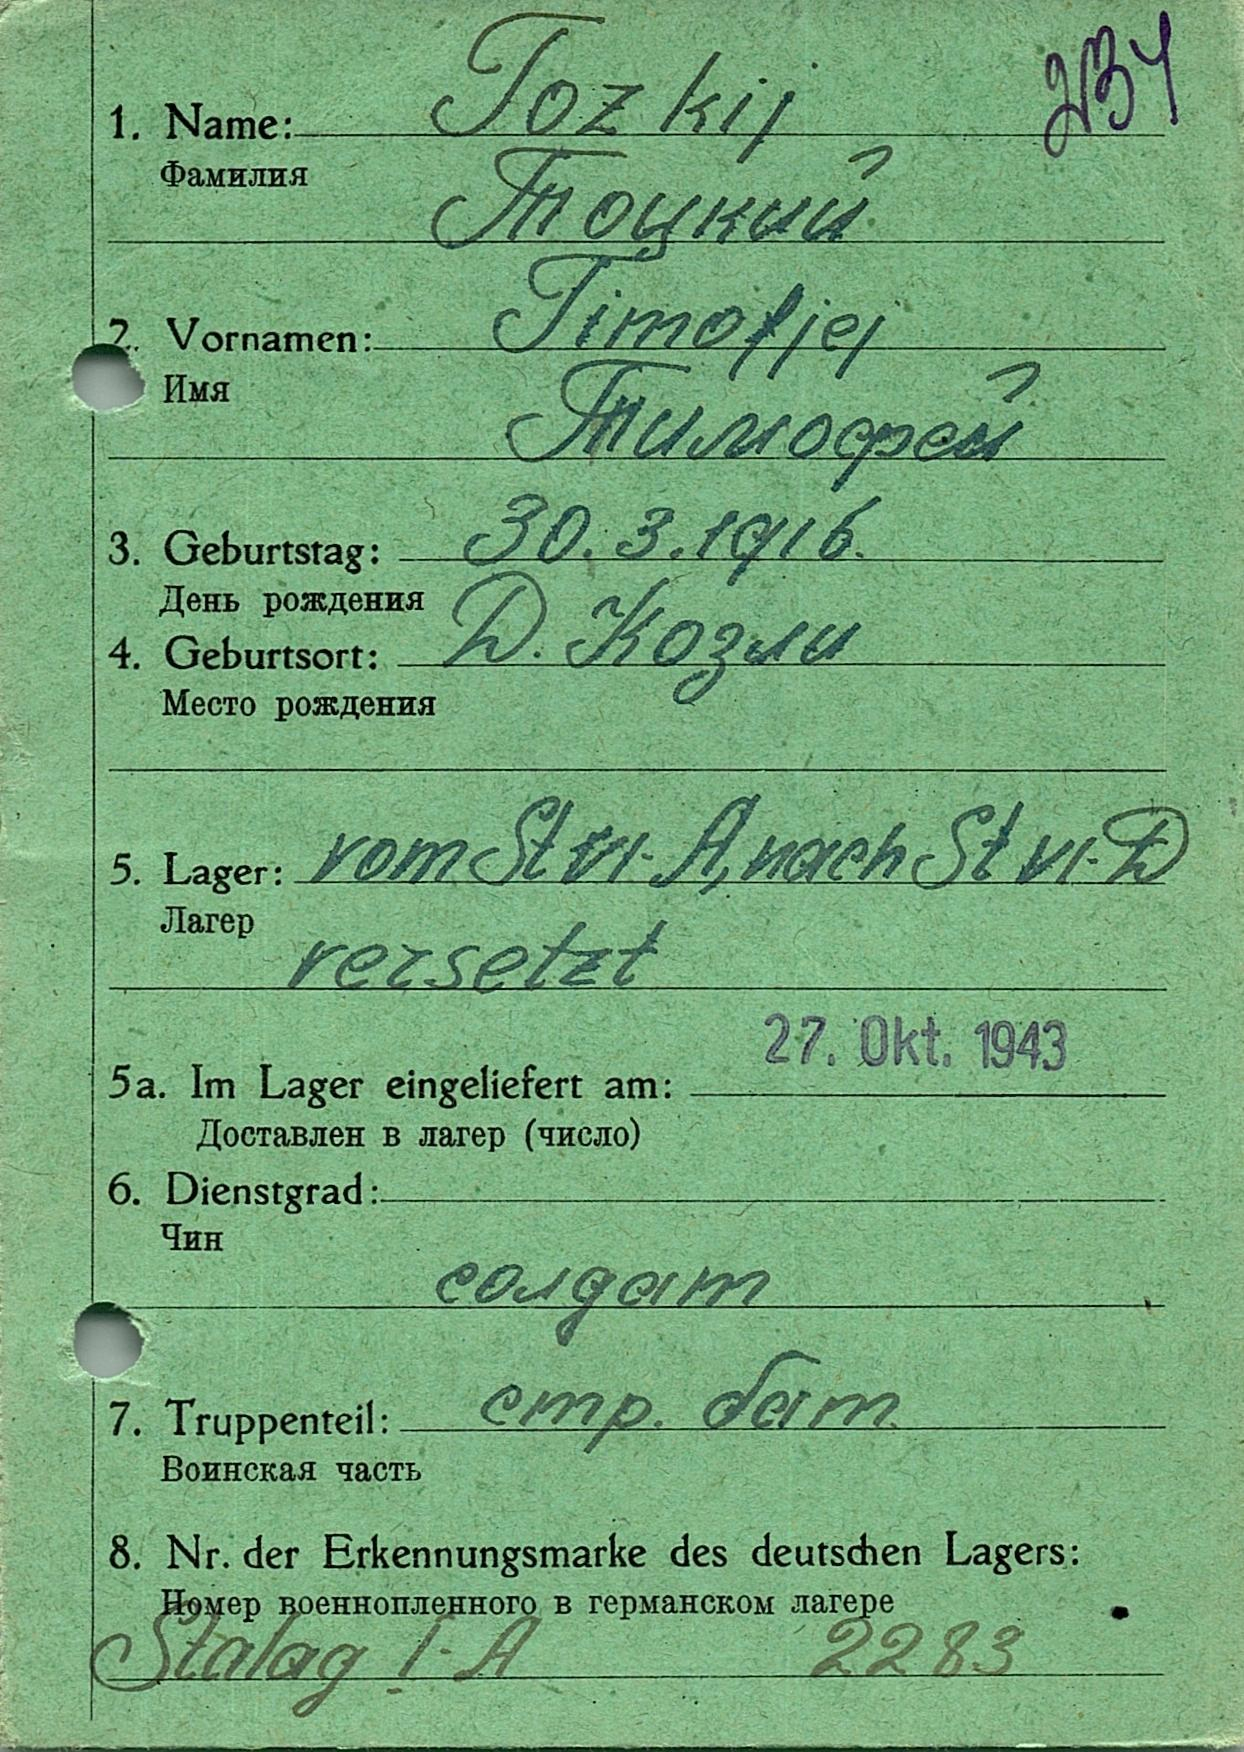 234
1. Name: Tozkij
Фамилия
Тоцкий
2. Vornamen: Timofjej
Имя
Тимофей
3. Geburtstag: 30.3.1916.
День рождения
4. Geburtsort: Д. Козли
Место рождения
5. Lager: vom St VI-A, nach St VI-D
Лагер
versetzt
27. Okt. 1943
5a. Im Lager eingeliefert am:
Доставлен в лагер (число)
6. Dienstgrad:
Чин
солдат
7. Truppenteil: стр. бат.
Воинская часть
8. Nr. der Erkennungsmarke des deutschen Lagers:
Номер военнопленного в германском лагере
Stalag I-A 2283